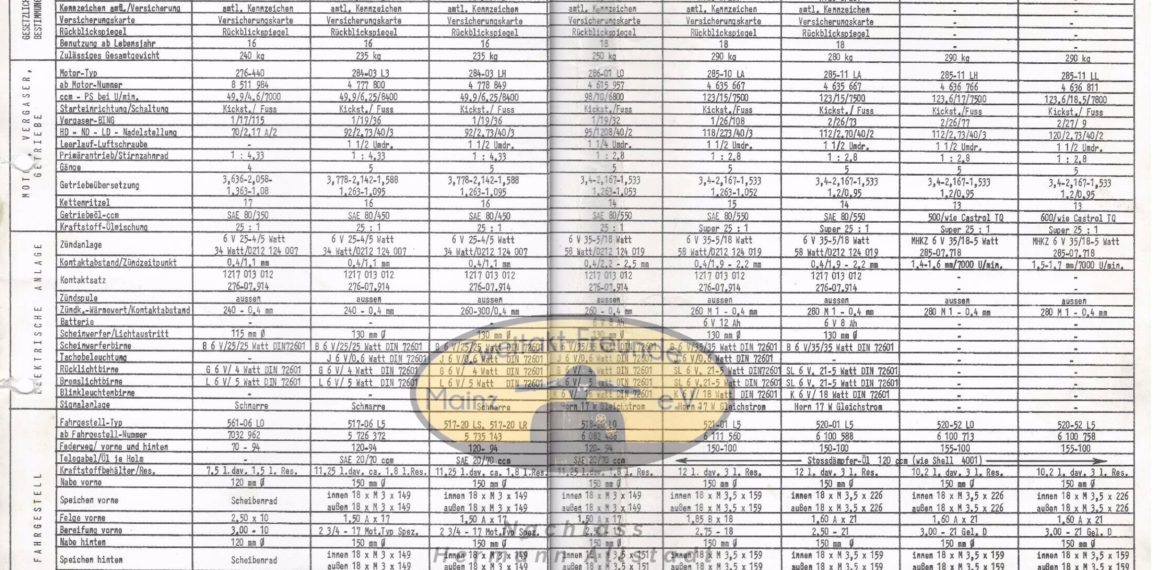 GESETZLICHE BESTIMMUNGEN
Kennzeichen amtl./Versicherung amtl. Kennzeichen amtl. Kennzeichen amtl. Kennzeichen amtl. Kennzeichen amtl. Kennzeichen amtl. Kennzeichen - -
Versicherungskarte Versicherungskarte Versicherungskarte Versicherungskarte Versicherungskarte Versicherungskarte Versicherungskarte - -
Rückblickspiegel Rückblickspiegel Rückblickspiegel Rückblickspiegel Rückblickspiegel Rückblickspiegel Rückblickspiegel - -
Benutzung ab Lebensjahr 16 16 16 18 18 18 - -
Zulässiges Gesamtgewicht 240 kg 235 kg 235 kg 250 kg 290 kg 280 kg 290 kg 290 kg
MOTOR, VERGASER, GETRIEBE
Motor-Typ 276-440 284-03 L3 284-03 LH 286-01 LO 285-10 LA 285-11 LA 285-11 LH 285-11 LL
ab Motor-Nummer 8 511 984 4 777 800 4 778 849 4 615 957 4 635 667 4 635 667 4 636 766 4 636 811
ccm - PS bei U/min. 49,9/4,6/7000 49,9/6,25/8400 49,9/6,25/8400 98/10/6800 123/15/7500 123/15/7500 123,6/17/7500 123,6/18,5/7800
Starteinrichtung/Schaltung Kickst./ Fuss Kickst./ Fuss Kickst./ Fuss Kickst./ Fuss Kickst./ Fuss Kickst./ Fuss Kickst./ Fuss Kickst./ Fuss
Vergaser-BING 1/17/115 1/19/36 1/19/36 1/19/32 1/26/108 2/26/73 2/26/77 2/27/ 9
HD - ND - LD - Nadelstellung 70/2,17 A/2 92/2,73/40/3 92/2,73/40/3 95/1208/40/2 118/273/40/3 112/2,70/40/2 112/2,73/40/3 120/2,73/40/2
Leerlauf-Luftschraube - 1 1/2 Umdr. 1 1/2 Umdr. 1 1/4 Umdr. 1 1/2 Umdr. 1 1/2 Umdr. 1 1/2 Umdr. 1 1/2 Umdr.
Primärantrieb/Stirnzahnrad 1 : 4,33 1 : 4,33 1 : 4,33 1 : 2,8 1 : 2,8 1 : 2,8 1 : 2,8 1 : 2,8
Gänge 4 5 5 5 5 5 5 5
Getriebeübersetzung 3,636-2,058- 3,778-2,142-1,588 3,778-2,142-1,588 3,4-2,167-1,533 3,4-2,167-1,533 3,4-2,167-1,533 3,4-2,167-1,533 3,4-2,167-1,533
1,363-1,08 1,263-1,095 1,263-1,095 1,263-1,053 1,263-1,052 1,2/0,95 1,2/0,95 1,2/0,95
Kettenritzel 17 16 16 14 15 14 13 13
Getriebeöl-ccm SAE 80/350 SAE 80/450 SAE 80/450 SAE 80/550 SAE 80/550 SAE 80/550 500/wie Castrol TQ 600/wie Castrol TQ
Kraftstoff-Ölmischung 25 : 1 25 : 1 25 : 1 25 : 1 Super 25 : 1 Super 25 : 1 Super 25 : 1 Super 25 : 1
ELEKTRISCHE ANLAGE
Zündanlage 6 V 25-4/5 Watt 6 V 25-4/5 Watt 6 V 25-4/5 Watt 6 V 35-5/18 Watt 6 V 35-5/18 Watt 6 V 35-5/18 Watt MHKZ 6 V 35/18-5 Watt MHKZ 6 V 35/18-5 Watt
34 Watt/0212 124 007 34 Watt/0212 124 007 34 Watt/0212 124 007 58 Watt/0212 124 019 58 Watt/0212 124 019 58 Watt/0212 124 019 285-07.718 285-07.718
Kontaktabstand/Zündzeitpunkt 0,4/1,1 mm 0,4/1,1 mm 0,4/1,1 mm 0,4/2,2 - 2,5 mm 0,4/1,9 - 2,2 mm 0,4/1,9 - 2,2 mm 1,4-1,6 mm/7000 U/min. 1,5-1,7 mm/7000 U/min.
Kontaktsatz 1217 013 012 1217 013 012 1217 013 012 1217 013 012 1217 013 012 1217 013 012 - -
276-07.914 276-07.914 276-07.914 276-07.914 276-07.914 276-07.914
Zündspule aussen aussen aussen aussen aussen aussen aussen aussen
Zündk.-Wärmewert/Kontaktabstand 240 - 0,4 mm 240 - 0,4 mm 260-300/0,4 mm 260 - 0,4 mm 260 M 1 - 0,4 mm 280 M 1 - 0,4 mm 280 M 1 - 0,4 mm 280 M 1 - 0,4 mm
Batterie - - - 6 V 8 Ah 6 V 12 Ah 6 V 8 Ah - -
Scheinwerfer/Lichtaustritt 115 mm Ø 130 mm Ø 130 mm Ø 130 mm Ø 130 mm Ø 130 mm Ø - -
Scheinwerferbirne B 6 V/25/25 Watt DIN72601 B 6 V/25/25 Watt DIN 72601 B 6 V/25/25 Watt DIN 72601 B 6 V/35/35 Watt DIN 72601 B 6 V/35/35 Watt DIN 72601 B 6 V/35/35 Watt DIN 72601 - -
Tachobeleuchtung - J 6 V/0,6 Watt DIN 72601 J 6 V/0,6 Watt DIN 72601 J 6 V/0,6 Watt DIN 72601 J 6 V/0,6 Watt DIN 72601 - - -
Rücklichtbirne G 6 V/ 4 Watt DIN 72601 G 6 V/ 4 Watt DIN 72601 G 6 V/ 4 Watt DIN 72601 G 6 V/ Watt DIN 72601 SL 6 V, 21-5 Watt DIN72601 SL 6 V, 21-5 Watt DIN 72601 - -
Bremslichtbirne L 6 V/ 5 Watt DIN 72601 L 6 V/ 5 Watt DIN 72601 L 6 V/ 5 Watt DIN 72601 6 V/ Watt DIN 72601 SL 6 V, 21-5 Watt DIN 72601 SL 6 V, 21-5 Watt DIN 72601 - -
Blinkleuchtenbirne - - - K 6 V/ 18 Watt DIN 72601 K 6 V/ 18 Watt DIN 72601 K 6 V/ 18 Watt DIN 72601 - -
Signalanlage Schnarre Schnarre Schnarre Horn 17 W Gleichstrom Horn 17 W Gleichstrom Horn 17 W Gleichstrom - -
Zweitakt-Freunde
Mainz e.V.
FAHRGESTELL
Fahrgestell-Typ 561-06 LO 517-06 L5 517-20 LS, 517-20 LR 518- LO 521-01 L5 520-01 L5 520-52 LO 520-52 L5
ab Fahrgestell-Nummer 7032 962 5 726 372 5 735 143 6 082 486 6 111 560 6 100 588 6 100 713 6 100 758
Federweg/ vorne und hinten 70 - 94 120-94 120- 94 120- 94 150-100 150-100 155-100 155-100
Telegabel/Öl je Holm - SAE 20/70 ccm SAE 20/70 ccm SAE 20/70 ccm Stossdämpfer-Öl 120 ccm (wie Shell 4001)
Kraftstoffbehälter/Res. 7,5 l.dav. 1,5 l. Res. 11,25 l.dav. ca. 1,8 l.Res. 11,25 l.dav. ca. 1,8 l.Res. 11,25 l.dav. 1,8 l. Res. 12 l. dav. 3 l. Res. 12 l. dav. 3 l. Res. 10,2 l. dav. 3 l. Res. 10,2 l. dav. 3 l. Res.
Nabe vorne 120 mm Ø 150 mm Ø 150 mm Ø 150 mm Ø 150 mm Ø 150 mm Ø 150 mm Ø 150 mm Ø
Speichen vorne Scheibenrad innen 18 x M 3 x 149 innen 18 x M 3 x 149 innen 18 x M 3 x 149 innen 18 x M 3,5 x 159 innen 18 x M 3,5 x 226 innen 18 x M 3,5 x 226 innen 18 x M 3,5 x 226
außen 18 x M 3 x 149 außen 18 x M 3 x 149 außen 18 x M 3 x 149 außen 18 x M 3,5 x 159 außen 18 x M 3,5 x 226 außen 18 x M 3,5 x 226 außen 18 x M 3,5 x 226
Felge vorne 2,50 x 10 1,50 A x 17 1,50 A x 17 1,50 A x 17 1,85 B x 18 1,60 A x 21 1,60 A x 21 1,60 A x 21
Bereifung vorne 3,00 - 10 2 3/4 - 17 Mot.Typ Spez. 2 3/4 - 17 Mot.Typ Spez. 2,75 - 18 2,50 - 21 3,00 - 21 Gel. D 3,00 - 21 Gel. D
Nabe hinten 120 mm Ø 150 mm Ø 150 mm Ø 150 mm Ø 150 mm Ø 150 mm Ø 150 mm Ø 150 mm Ø
Speichen hinten Scheibenrad innen 18 x M 3 x 149 innen 18 x M 3 x 149 innen 18 x M 3 x 151 innen 18 x M 3,5 x 159 innen 18 x M 3,5 x 159 innen 18 x M 3,5 x 159 innen 18 x M 3,5 x 159
außen 18 x M 3 x 149 außen 18 x M 3 x 149 außen 18 x M 3 x 151 außen 18 x M 3,5 x 159 außen 18 x M 3,5 x 159 außen 18 x M 3,5 x 159 außen 18 x M 3,5 x 159
Nachlass
Hermann